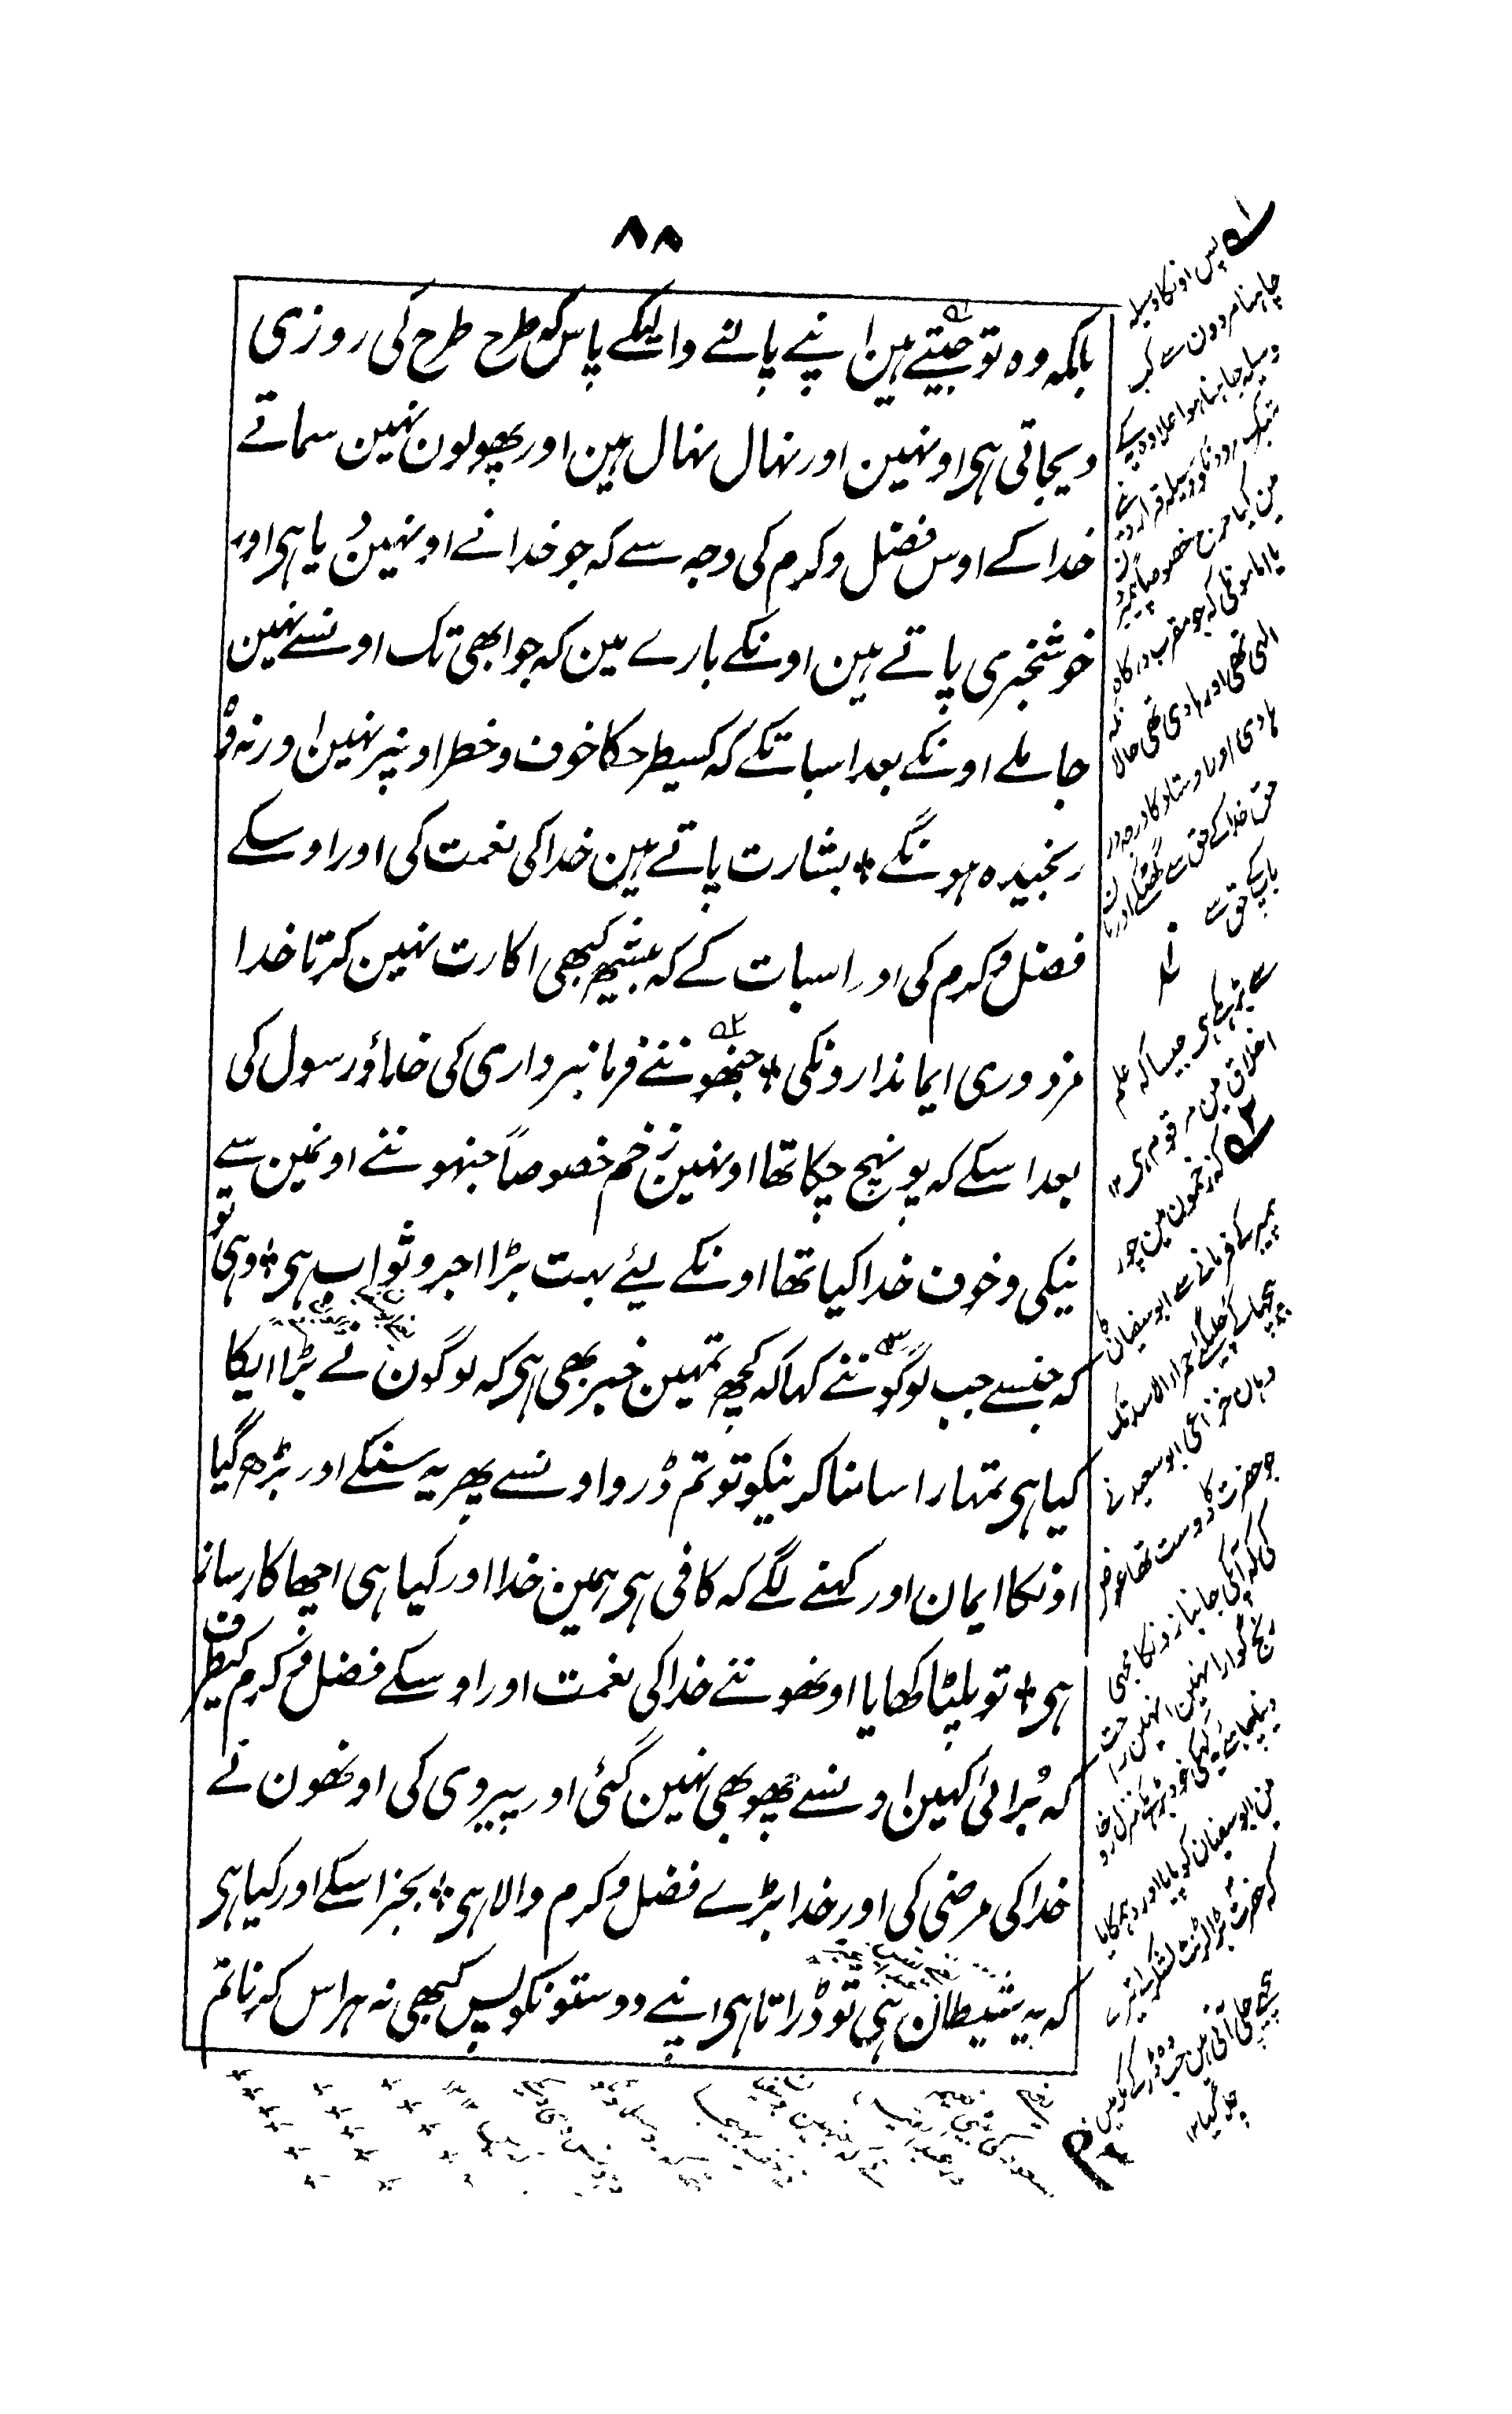 ۸۸
بلکہ وہ تو جیتے ہین اپنے پالنے والیکے پاس کہ طرح طرح کی روزی
دیجاتی ہی اونہین اور نہال نہال ہین اور پھولون نہین سماتے
خدا کے اوس فضل و کرم کی وجہ سے کہ جو خدا نے اونہین دیا ہی اور
خوشخبری پاتے ہین اونکے بارے مین کہ جو ابھی تک اونسے نہین
جاملے اونکے بعد اسباتکے کہ کسیطرحکا خوف و خطر اونپر نہین اور نہ وہ
رنجیدہ ہونگے ٭ بشارت پاتے ہین خدا کی نعمت کی اور اوسکے
فضل و کرم کی اور اسبات کے کہ بیشک کبھی اکارت نہین کرتا خدا
مزدوری ایماندارونکی ٭ جنھوننے فرمانبرداری کی خدا اور رسول کی
بعد اسکے کہ پونہچ چکا تھا اونہین زخم خصوصاً جنہوننے اونمین سے
نیکی و خوف خدا کیا تھا اونکے لیئے بہت بڑا اجر و ثواب ہی ٭ وہی تو
کہ جنسے جب لوگوننے کہا کہ کچھ تمہین خبر بھی ہی کہ لوگون نے بڑا ایکا
کیا ہی تمہارا سامنا کرنیکو تو تم ڈرو اونسے پھر یہ سنکے اور بڑھ گیا
اونکا ایمان اور کہنے لگے کہ کافی ہی ہمین خدا اور کیا ہی اچھا کارساز
ہی ٭ تو پلٹا کھایا اونھوننے خدا کی نعمت اور اوسکے فضل و کرم کیطرف
کہ بُرائی کہین اونسے چھو بھی نہین گئی اور پیروی کی اونھون نے
خدا کی مرضی کی اور خدا بڑے فضل و کرم والا ہی ٭ بجز اسکے اور کیا ہی
کہ یہ شیطان ہی تو ڈراتا ہی اپنے دوستونکو پس کبھی نہ ہراس کرنا تم
پس اونکا وسیلہ
چاہنا مردون سے کب
وسیلہ چاہنا ہوا علاوہ اسکے
مین کیا حرج خصوصاً پیمبر
یا امامونکی کہ جو مقرب درگاہ
الٰہی تھی اور ہادی تھی حالانکہ
ہادی اور اوستاد کا درجہ اور
حق خدا کے حق سے گھٹکے اور ما
باپ کے حق سے
سے بڑہکر ہی جیسا کہ علم
اخلاق مین مرقوم ہی ۱۲
کہ زخمون مین چور
پیمبر کے فرمانے سے ابوسفیان کا
پیچھا کیئے چلے گئے حمراء الاسد تک
وہان خزاعی ابو سعید نے
جو حضرت کا دوست تھا عرض
کی کہ آپکی جانبازونکا مجھی
رنج گوارا نہین انہین راحت
مین ابوسفیان کو پایا اور دہمکایا
پیچھے چلی آتی ہین جب وہ ڈر کے مکہ مین
چلا گیا ۱۲